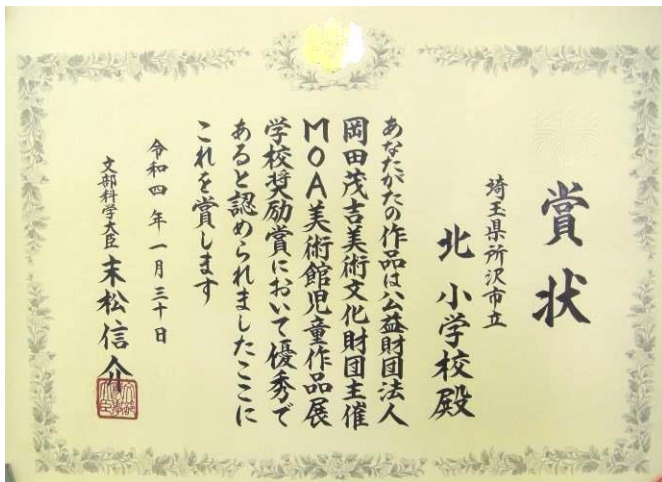 賞状
埼玉県所沢市立
北小学校殿
あなたがたの作品は公益財団法人
岡田茂吉美術文化財団主催
MOA美術館児童作品展
学校奨励賞において優秀で
あると認められましたここに
これを賞します
令和四年一月三十日
文部科学大臣 末松信介